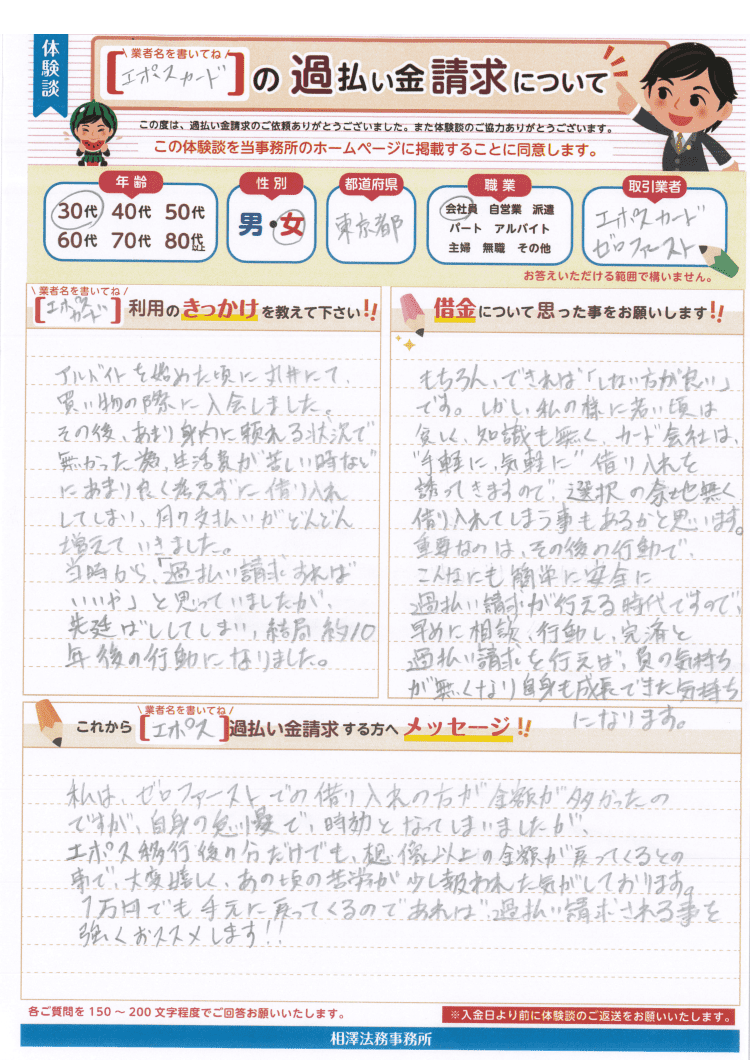 体験談
業者名を書いてね
[エポスカード]の過払い金請求について
この度は、過払い金請求のご依頼ありがとうございました。また体験談のご協力ありがとうございます。
この体験談を当事務所のホームページに掲載することに同意します。
年齢
30代 40代 50代
60代 70代 80代以上
性別
男・女
都道府県
東京都
職業
会社員 自営業 派遣
パート アルバイト
主婦 無職 その他
取引業者
エポスカード
ゼロファースト
お答えいただける範囲で構いません。
業者名を書いてね
[エポスカード]利用のきっかけを教えて下さい!!
アルバイトを始めた頃に丸井にて、
買い物の際に入会しました。
その後、あまり身内に頼れる状況で
無かった為、生活費が苦しい時など
にあまり良く考えずに借り入れ
してしまい、月々支払いがどんどん
増えていきました。
当時から、「過払い請求すれば
いいや」と思っていましたが、
先延ばししてしまい、結局約10
年後の行動になりました。
借金について思った事をお願いします!!
もちろん、できれば「しない方が良い」
です。しかし、私の様に若い頃は
貧しく、知識も無く、カード会社は、
"手軽に、気軽に"借り入れを
誘ってきますので、選択の余地無く
借り入れてしまう事もあるかと思います。
重要なのは、その後の行動で、
こんなにも簡単に安全に
過払い請求が行える時代ですので、
早めに相談、行動し、完済と
過払い請求を行えば、負の気持ち
が無くなり自身も成長できた気持ち
になります。
業者名を書いてね
これから[エポス]過払い金請求する方へメッセージ!!
私は、ゼロファーストでの借り入れの方が金額が多かったの
ですが、自身の怠慢で、時効となってしまいましたが、
エポス移行後の分だけでも、想像以上の金額が戻ってくるとの
事で、大変嬉しく、あの頃の苦労が少し報われた気がしております。
1万円でも手元に戻ってくるのであれば、過払い請求される事を
強くおススメします!!
各ご質問を150~200文字程度でご回答お願いいたします。
※入金日より前に体験談のご返送をお願いいたします。
相澤法務事務所